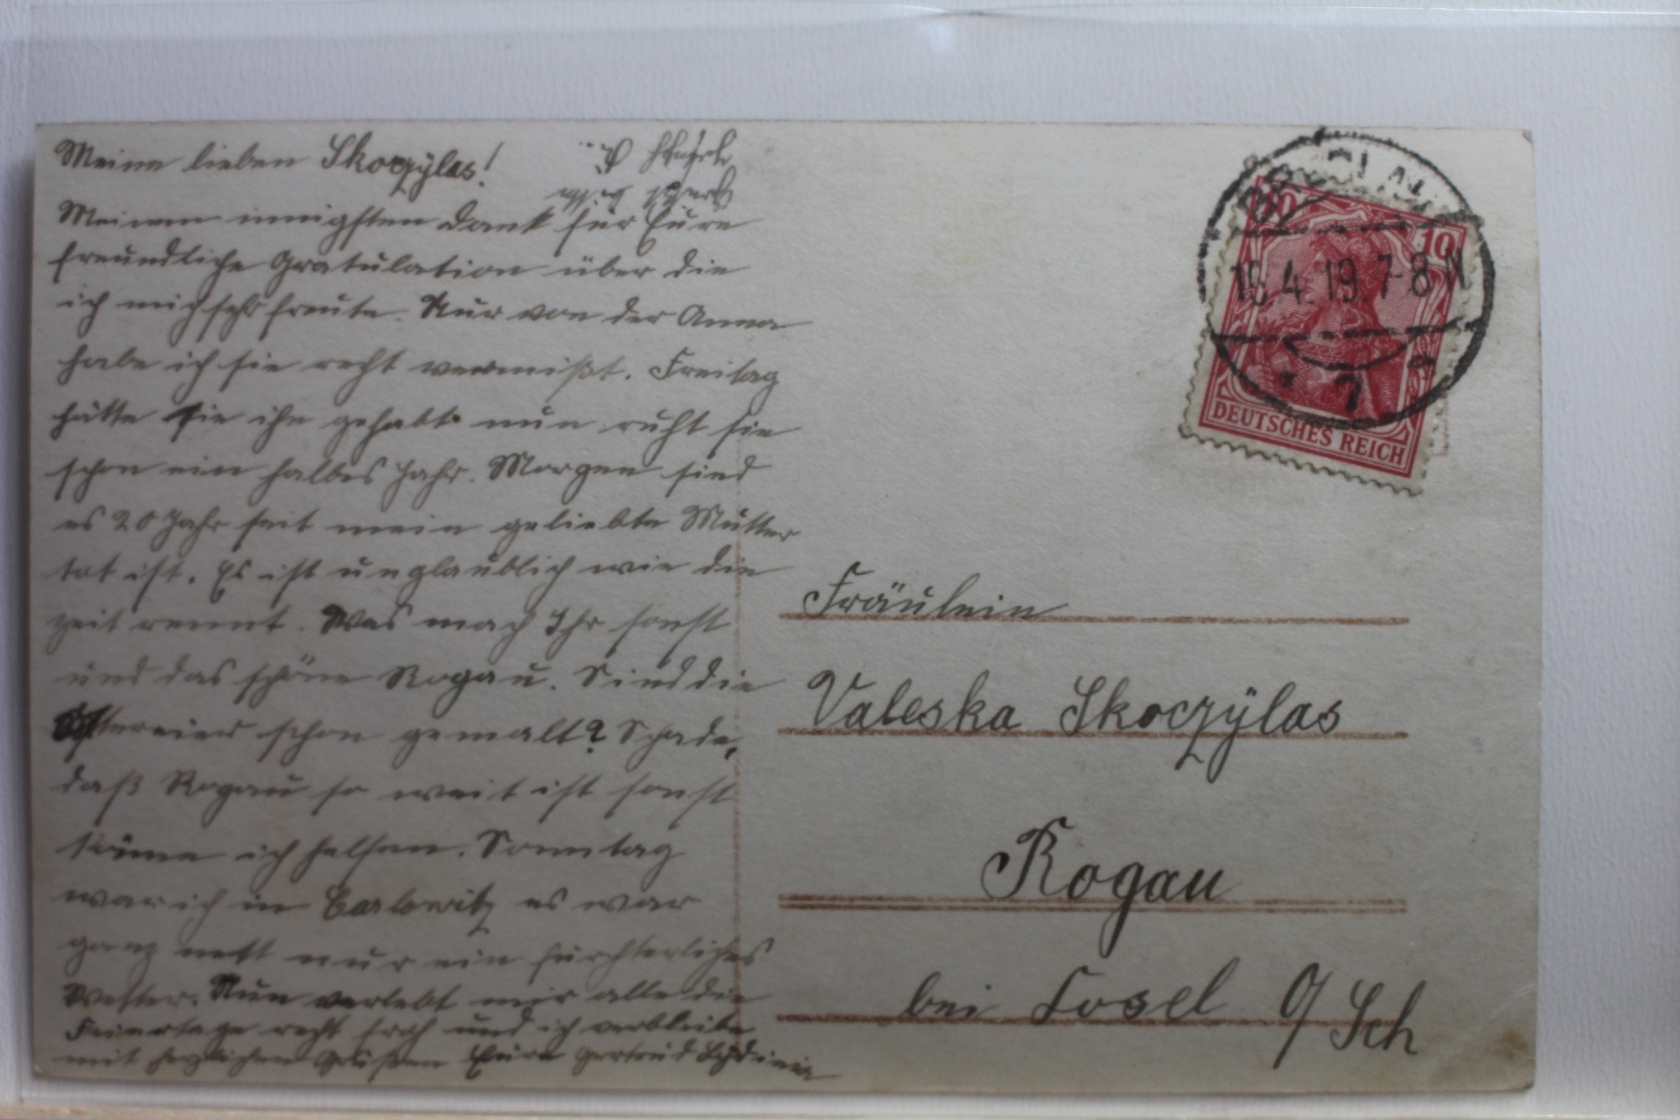 Meine lieben Skoczÿlas!
Meinen innigsten Dank für Eure
freundliche Gratulation über die
ich mich sehr freute. Nur von der Anna
habe ich sie recht vermißt. Freitag
hätte sie ihn gehabt nun ruht sie
schon ein halbes Jahr. Morgen sind
es 20 Jahr seit mein geliebte Mutter
tot ist. Es ist unglaublich wie die
Zeit rennt. Was mach Ihr sonst
und das schöne Rogau. Sind die
Ostereier schon gemalt? Schade,
daß Rogau so weit ist sonst
käme ich helfen. Sonntag
war ich in Carlowitz es war
ganz nett nur ein fürchterliches
Wetter. Nun verlebt mir alle die
Feiertage recht froh und ich verbleibe
mit herzlichen Grüßen Eure Gertrud
10 10
15.4.19.7-8 N
7
DEUTSCHES REICH
Fräulein
Valeska Skoczÿlas
Rogau
bei Cosel O/Sch